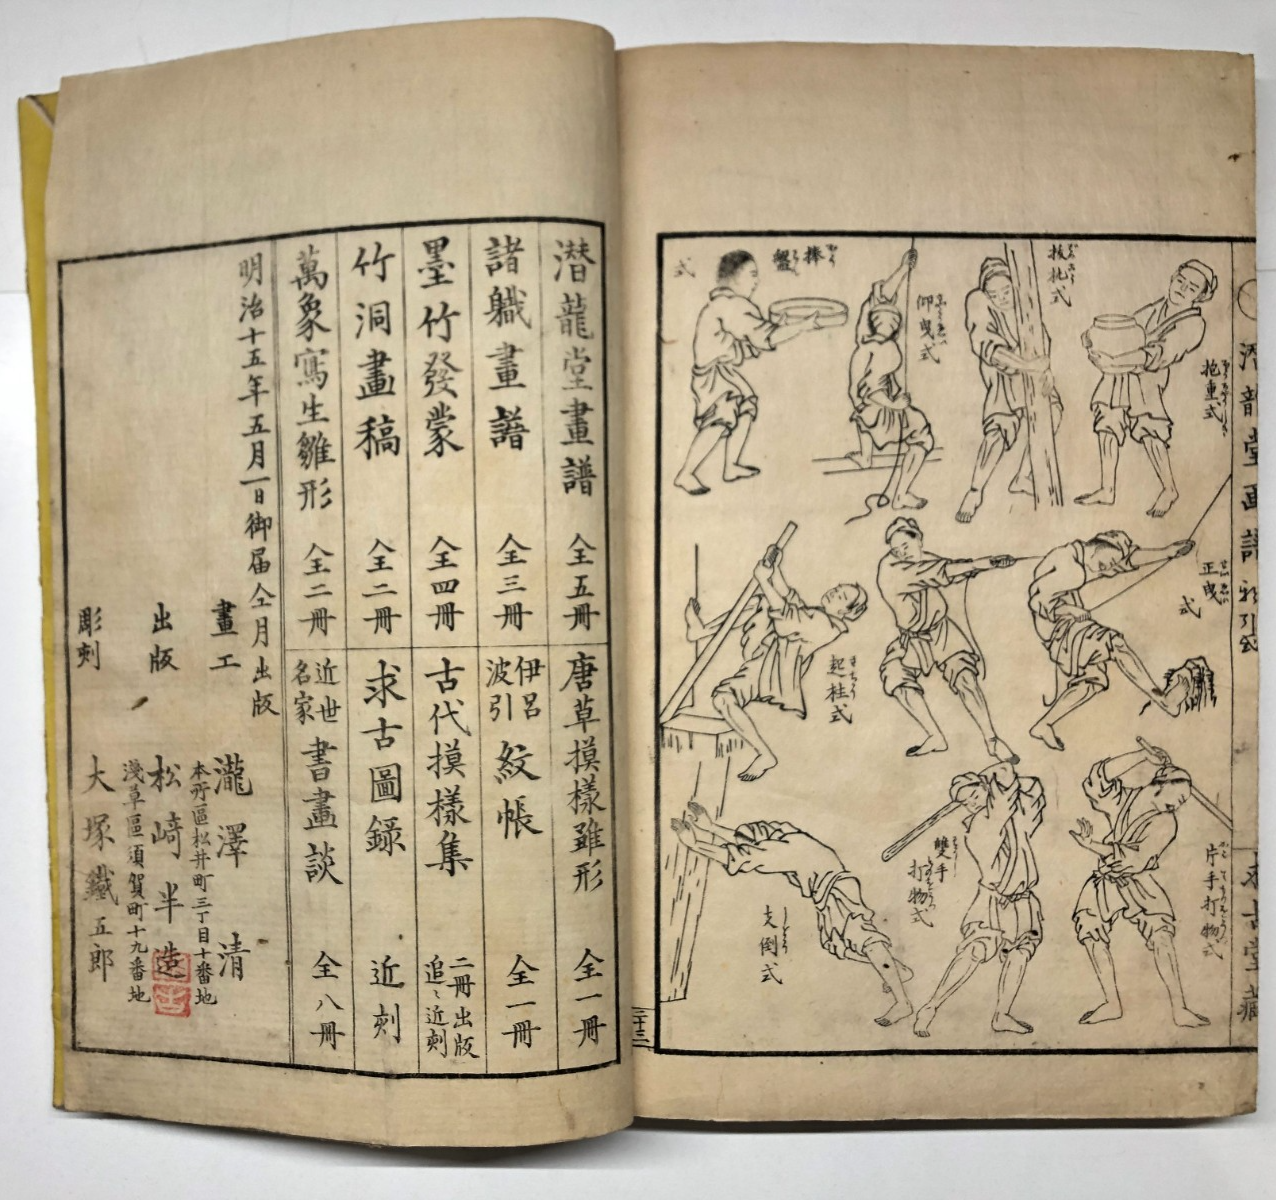 捧盤
式
仰曳式
抜扎式
抱重式
正曳
式
起柱式
支倒式
雙手
打物式
片手打物式
求古堂藏
潜龍堂畫譜 全五冊
諸職畫譜 全三冊
墨竹發蒙 全四冊
竹洞畫稿 全二冊
萬象寫生雛形 全二冊
唐草摸樣雖形 全一冊
伊呂波引 紋帳 全一冊
古代摸樣集 二冊出版 追々近刻
求古圖録 近刻
近世名家 書畫談 全八冊
明治十五年五月一日御届仝月出版
畫工 瀧澤清
本所區松井町三丁目十番地
出版 松﨑半造
淺草區須賀町十九番地
彫刻 大塚鐵五郎